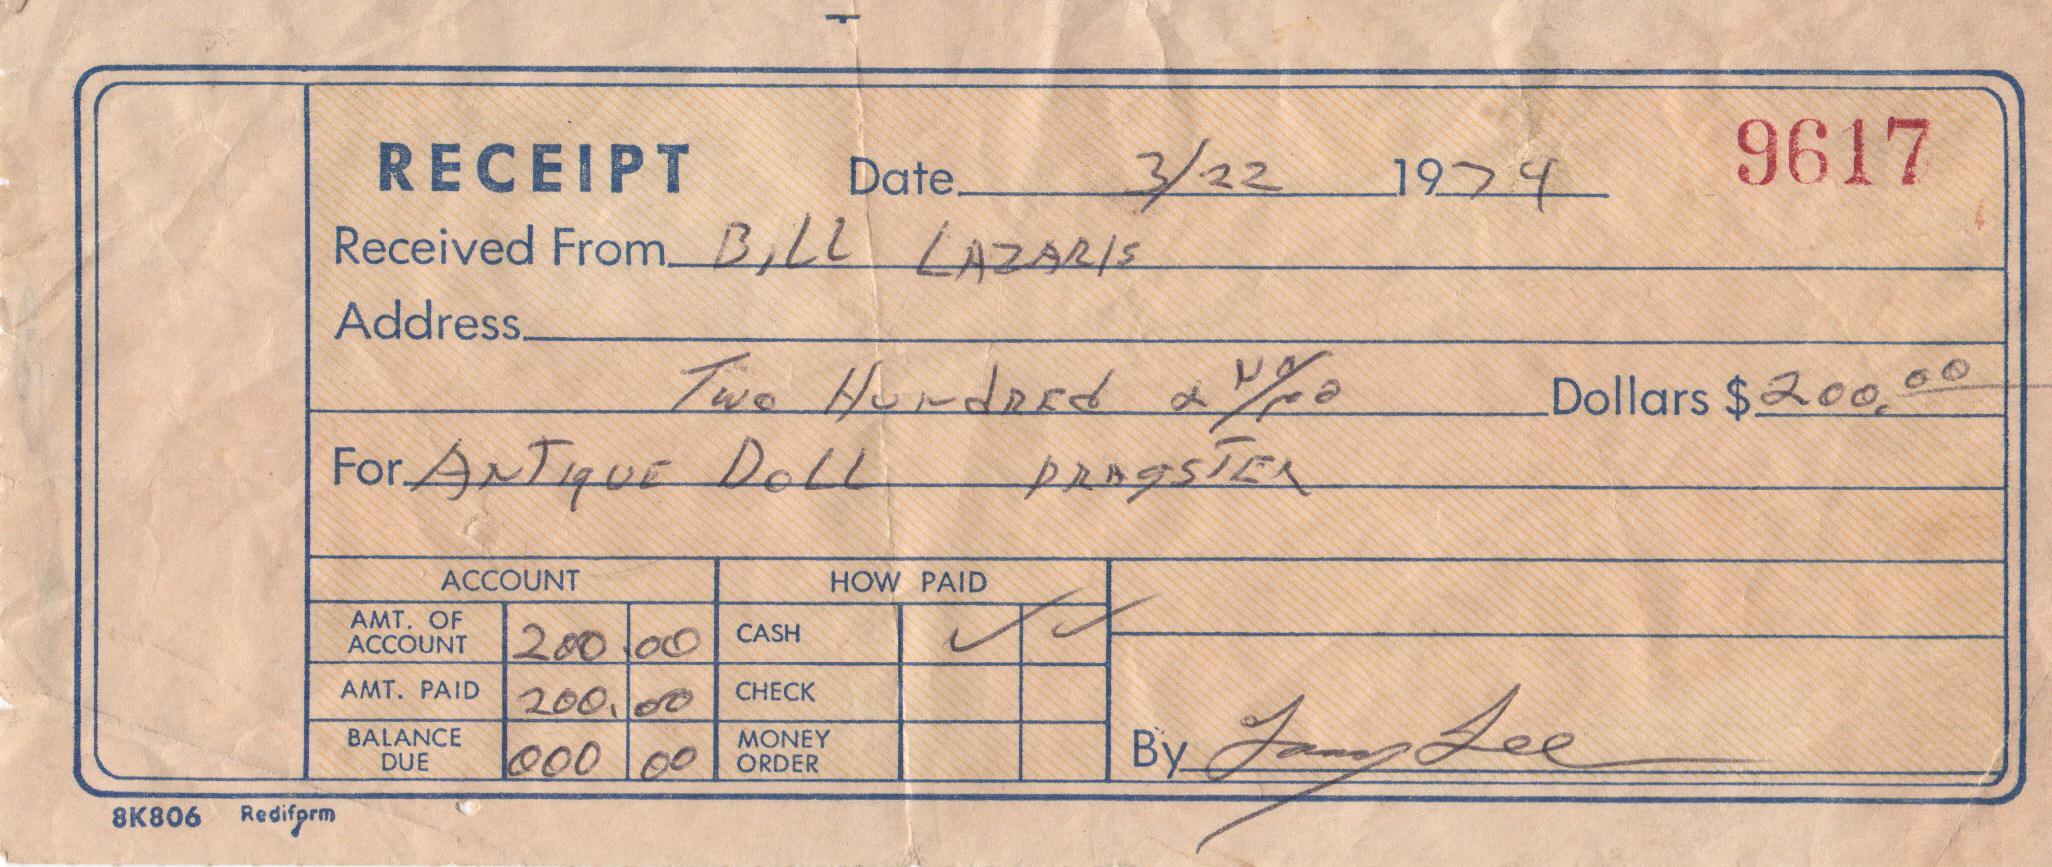 RECEIPT Date 3/22 1974 9617
Received From BILL LAZARIS
Address
Two Hundred & no/00 Dollars $ 200.00
For ANTIQUE DOLL DRAGSTER
ACCOUNT HOW PAID
AMT. OF ACCOUNT 200.00 CASH ✓ ✓
AMT. PAID 200.00 CHECK
BALANCE DUE 000 00 MONEY ORDER
By Lee
8K806 Rediform